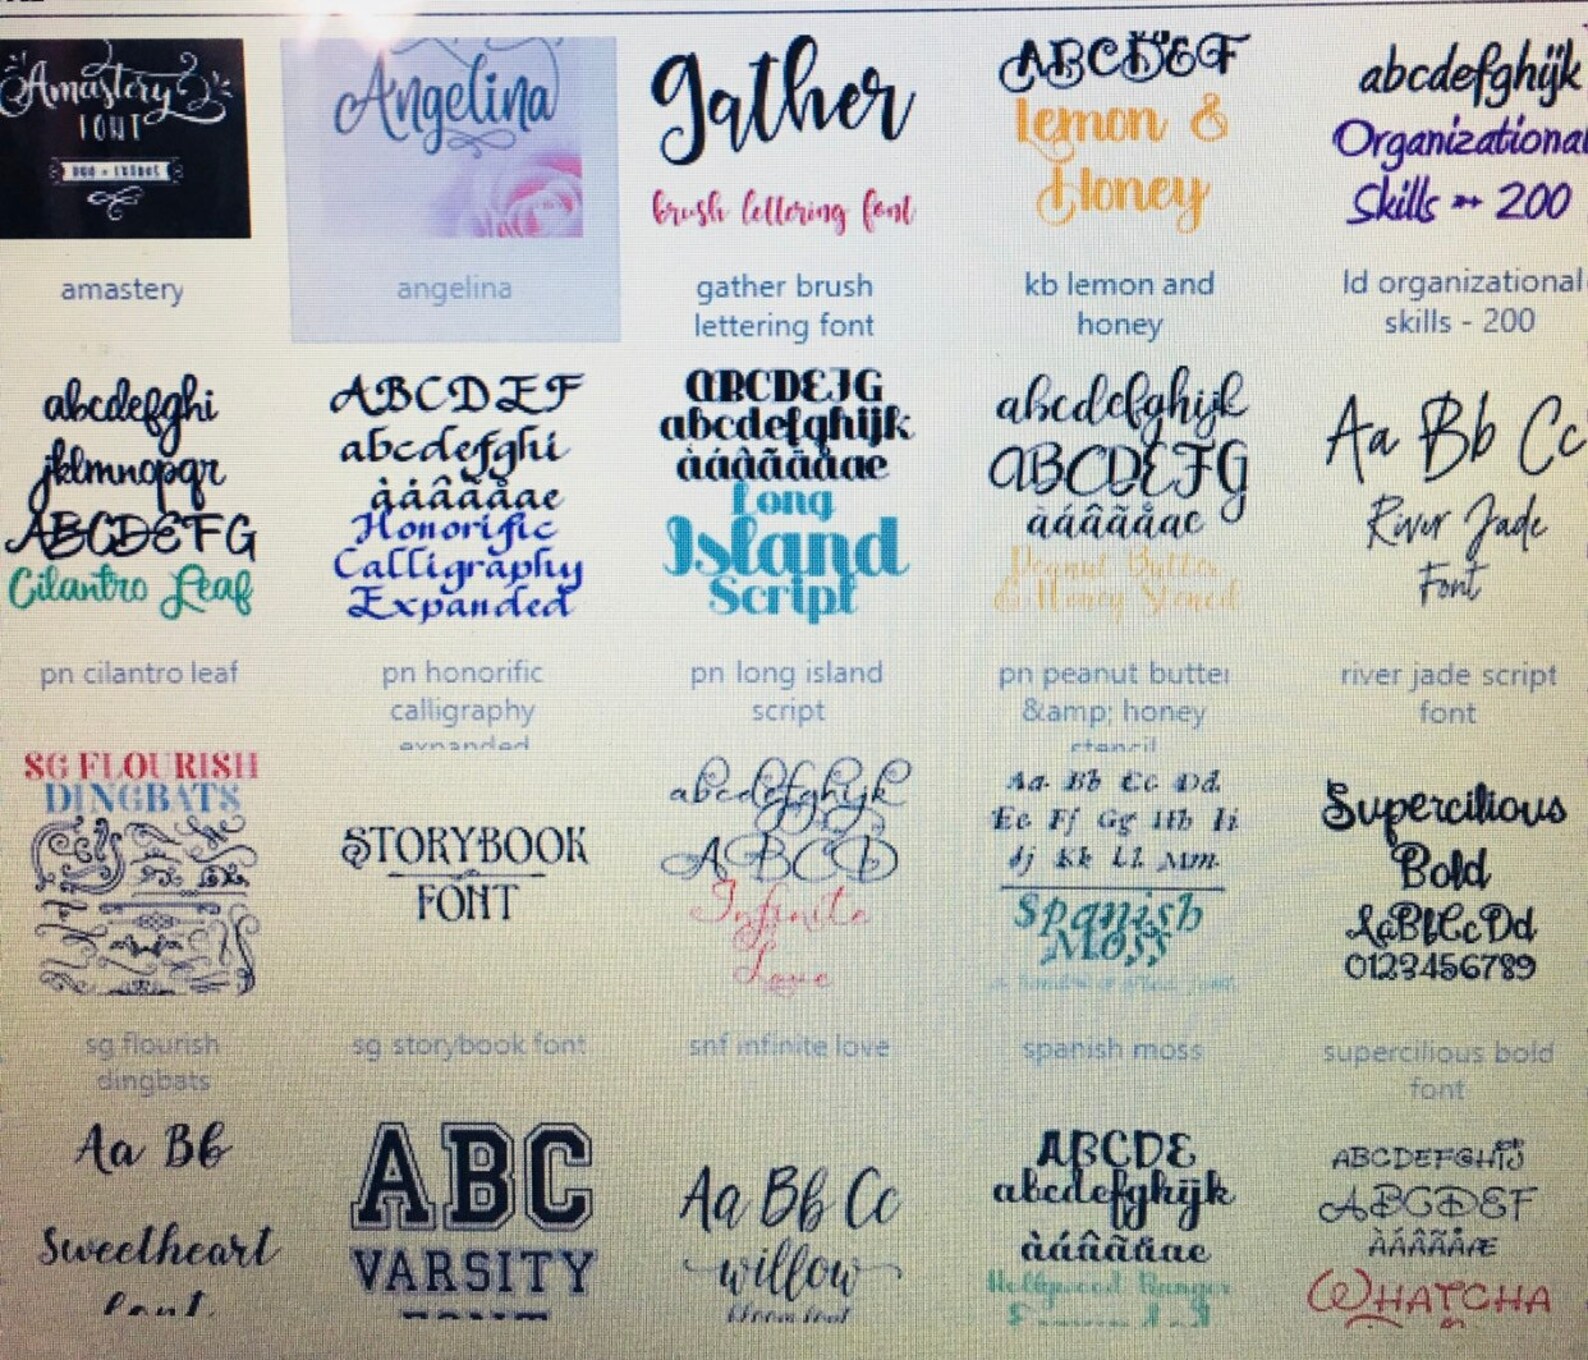 Amastery
FONT
DUO + EXTRAS
amastery
Angelina
angelina
gather
brush lettering font
gather brush
lettering font
ABCDEF
Lemon &
Honey
kb lemon and
honey
abcdefghijk
Organizational
Skills ➳ 200
ld organizational
skills - 200
abcdefghi
jklmnopqr
ABCDEFG
Cilantro Leaf
pn cilantro leaf
ABCDEF
abcdefghi
àáâãäåae
Honorific
Calligraphy
Expanded
pn honorific
calligraphy
expanded
ABCDEFG
abcdefghijk
àáâãäåae
Long
Island
Script
pn long island
script
abcdefghijk
ABCDEFG
àáâãäåae
Peanut Butter
& Honey Stencil
pn peanut butter
&amp; honey
stencil
Aa Bb Cc
River Jade
Font
river jade script
font
SG FLOURISH
DINGBATS
sg flourish
dingbats
STORYBOOK
FONT
sg storybook font
abcdefghijk
ABCD
Infinite
Love
snf infinite love
Aa Bb Cc Dd
Ee Ff Gg Hh Ii
Jj Kk Ll Mm
Spanish
Moss
spanish moss
Supercilious
Bold
AaBbCcDd
0123456789
supercilious bold
font
Aa Bb
Sweetheart
font
ABC
VARSITY
Aa Bb Cc
willow
bloom font
ABCDE
abcdefghijk
àáâãäåae
Hollywood
ABCDEFGHIJ
ABCDEF
ÀÁÂÃÄÅÆ
WHATCHA